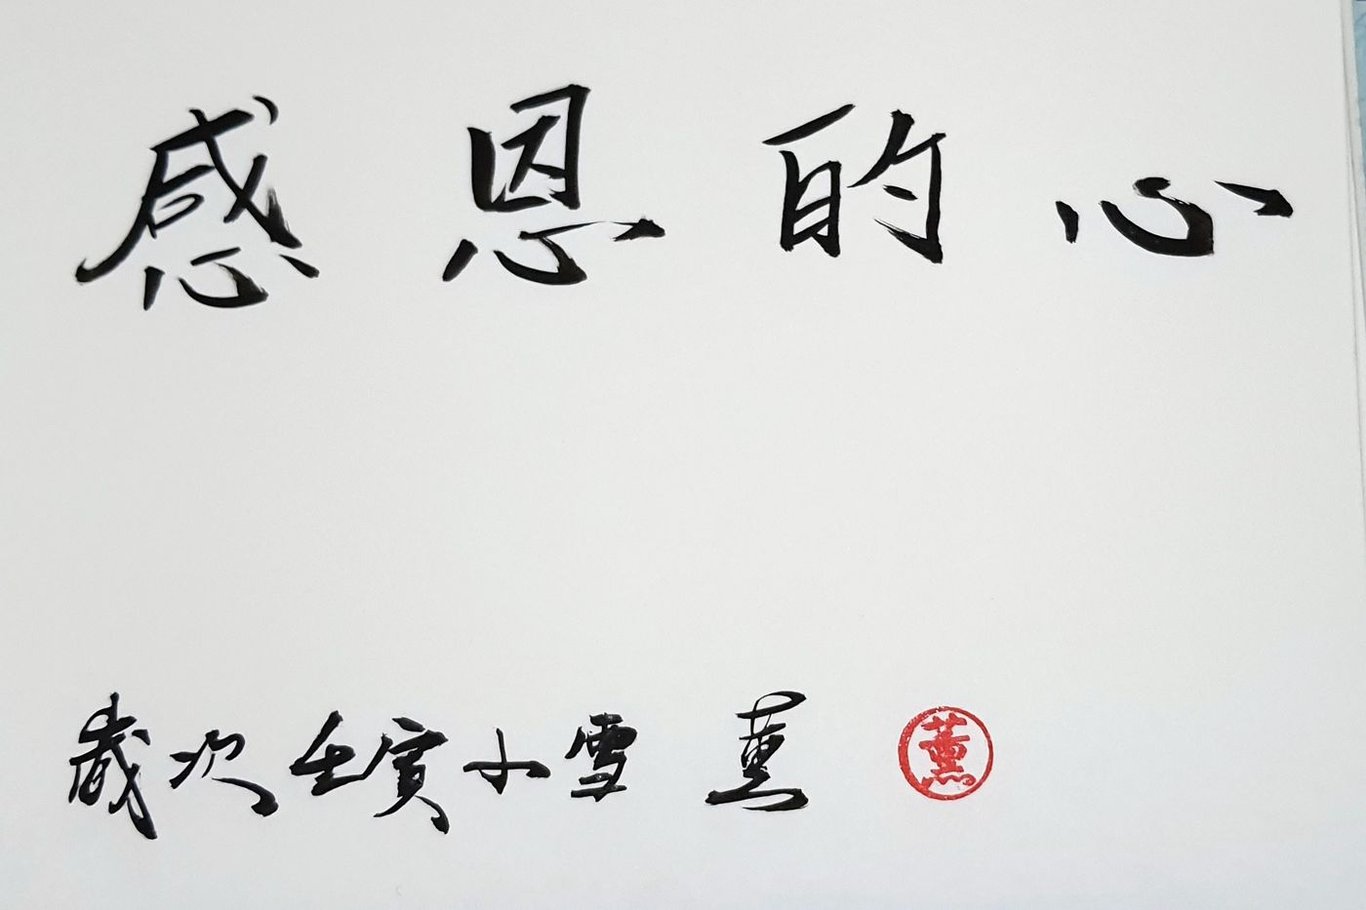 感恩的心
歲次壬寅小雪 薰 薰